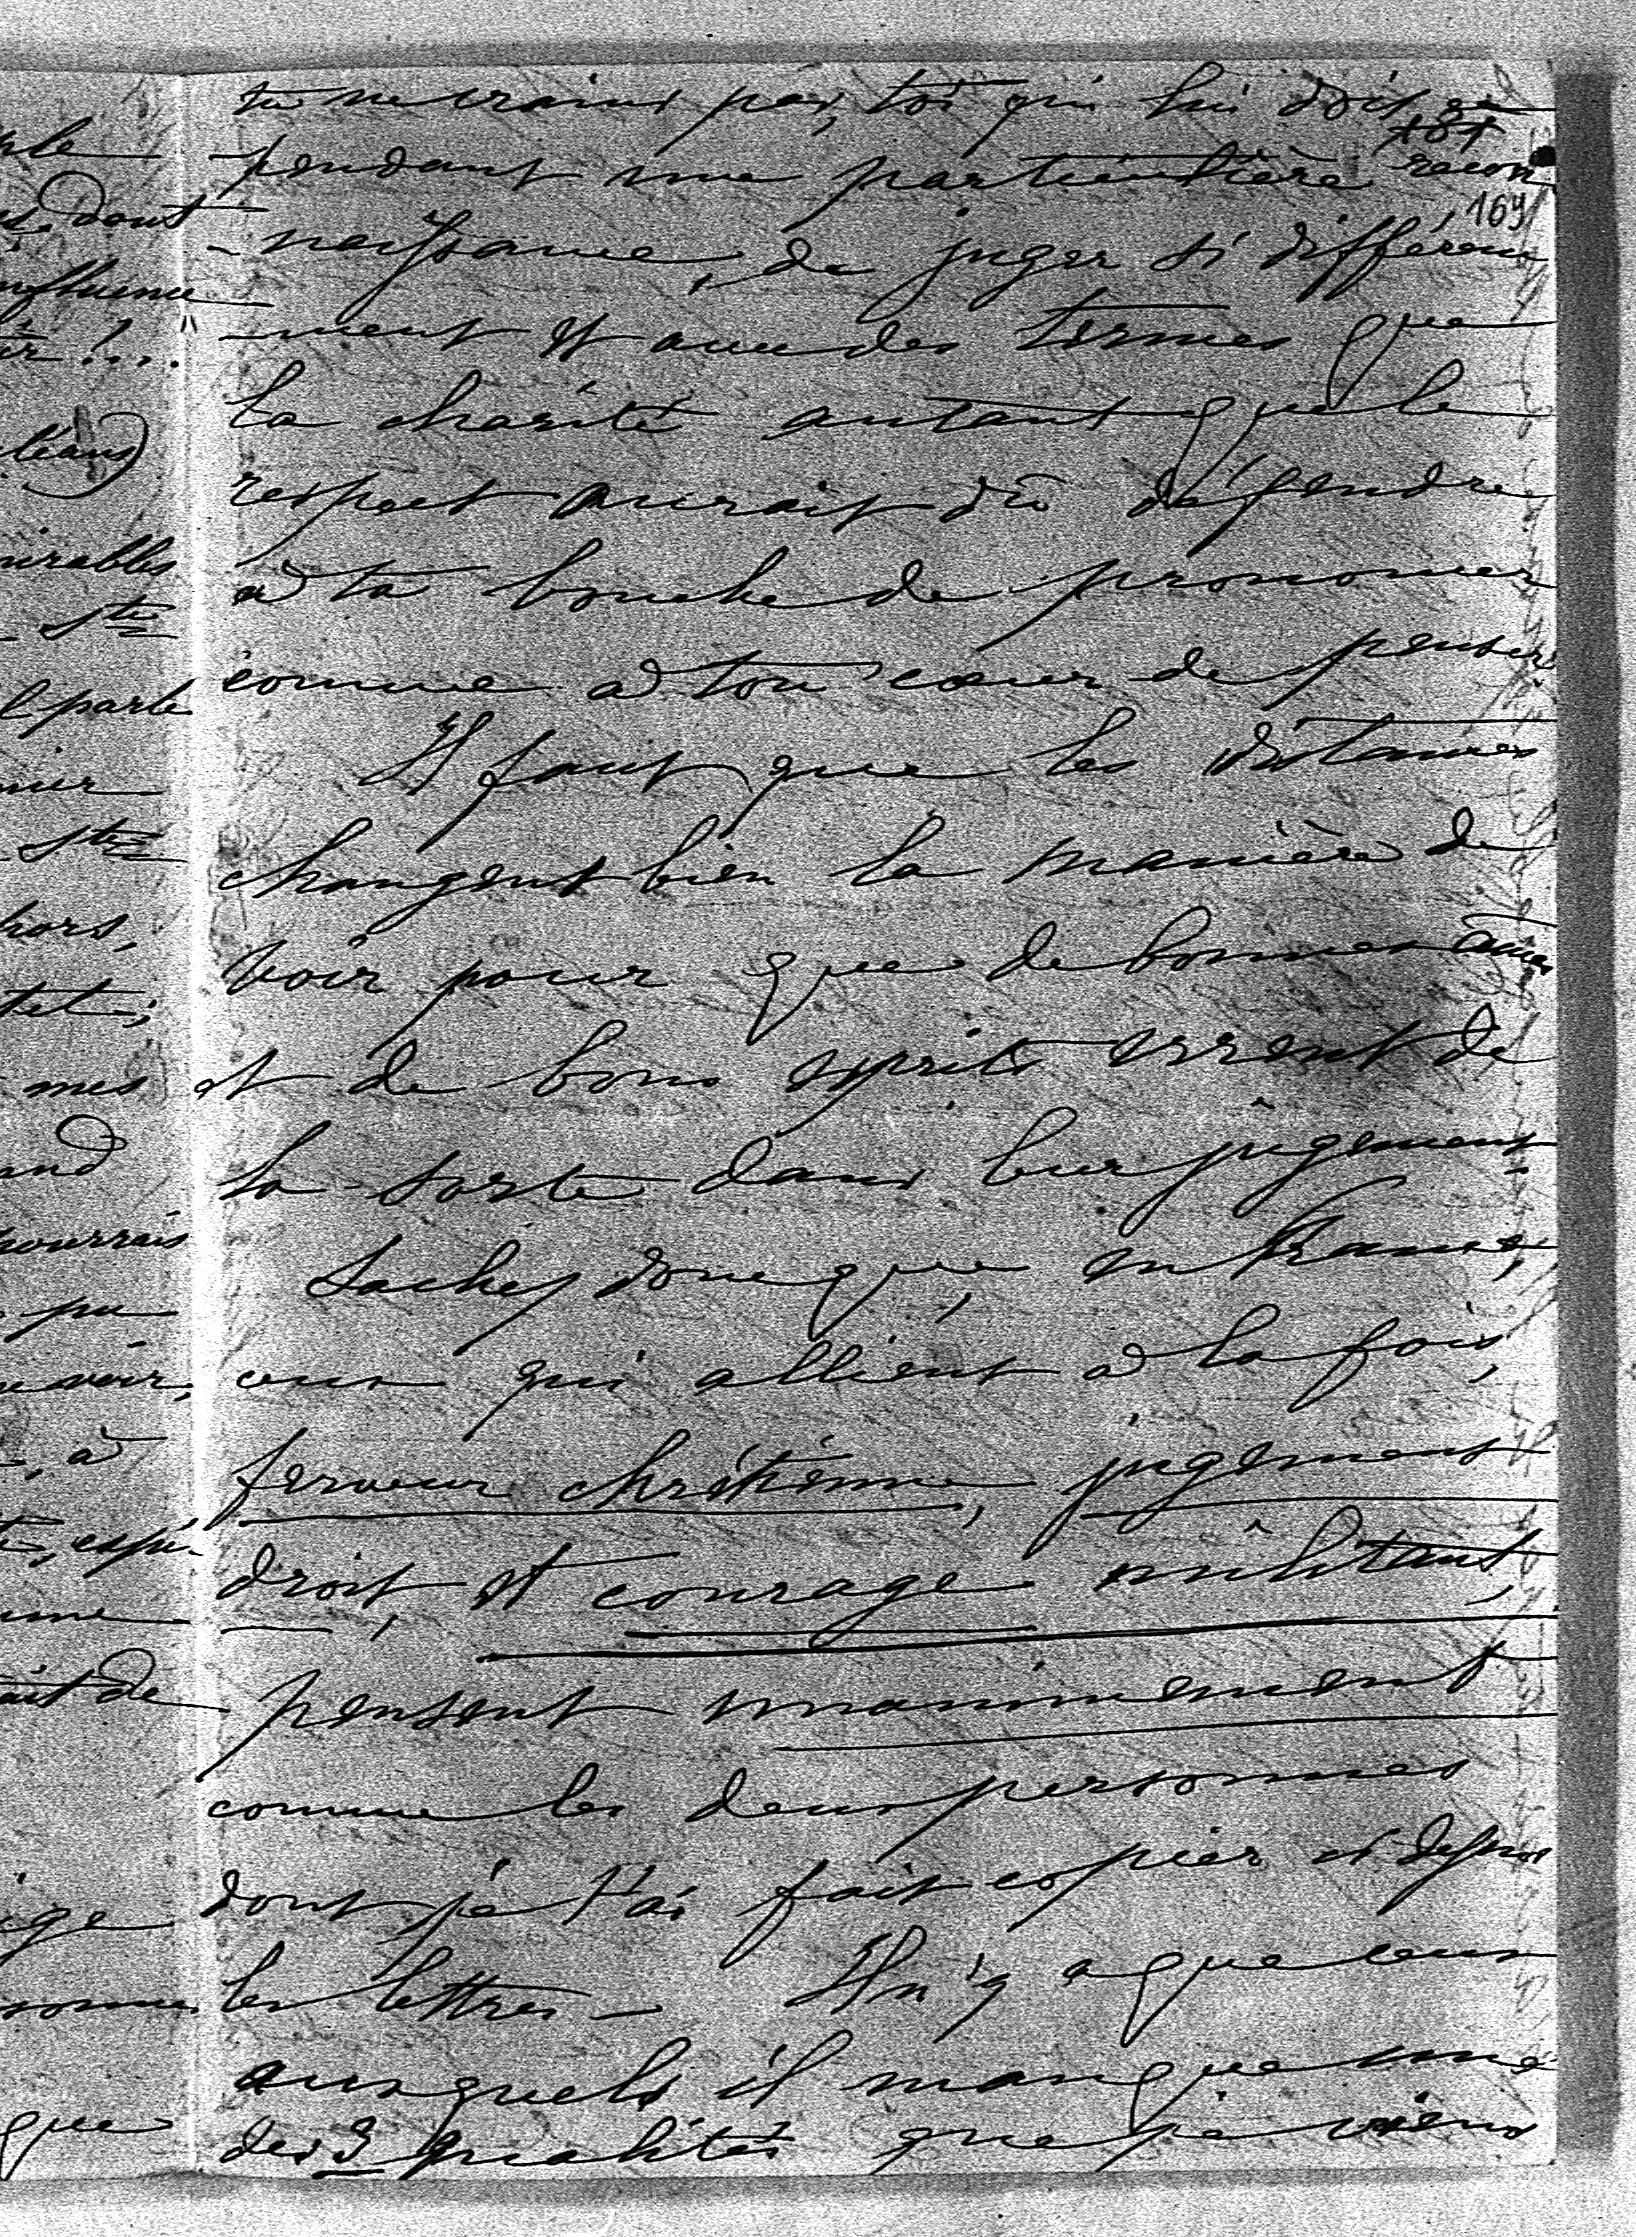 tu ne crains pas, toi qui lui dois ce
pendant une particulière recon
169
-naissance, de juger si différem
-ment et avec des termes que
la charité autant que le
respect aurait dû défendre
à ta bouche de prononcer
comme à ton cœur de penser.
Il faut que les distances
changent bien la manière de
voir pour que de bonnes âmes
et de bons esprits errent de
la sorte dans leur jugement
Sachez donc que, en France,
ceux qui allient à la fois,
ferveur chrétienne, jugement
droit, et courage militant,
pensent unanimement
comme les deux personnes
dont je t'ai fait copier ci dessus
les lettres - Il n'y a que ceux
auxquels il manque une
des 3 qualités que je viens